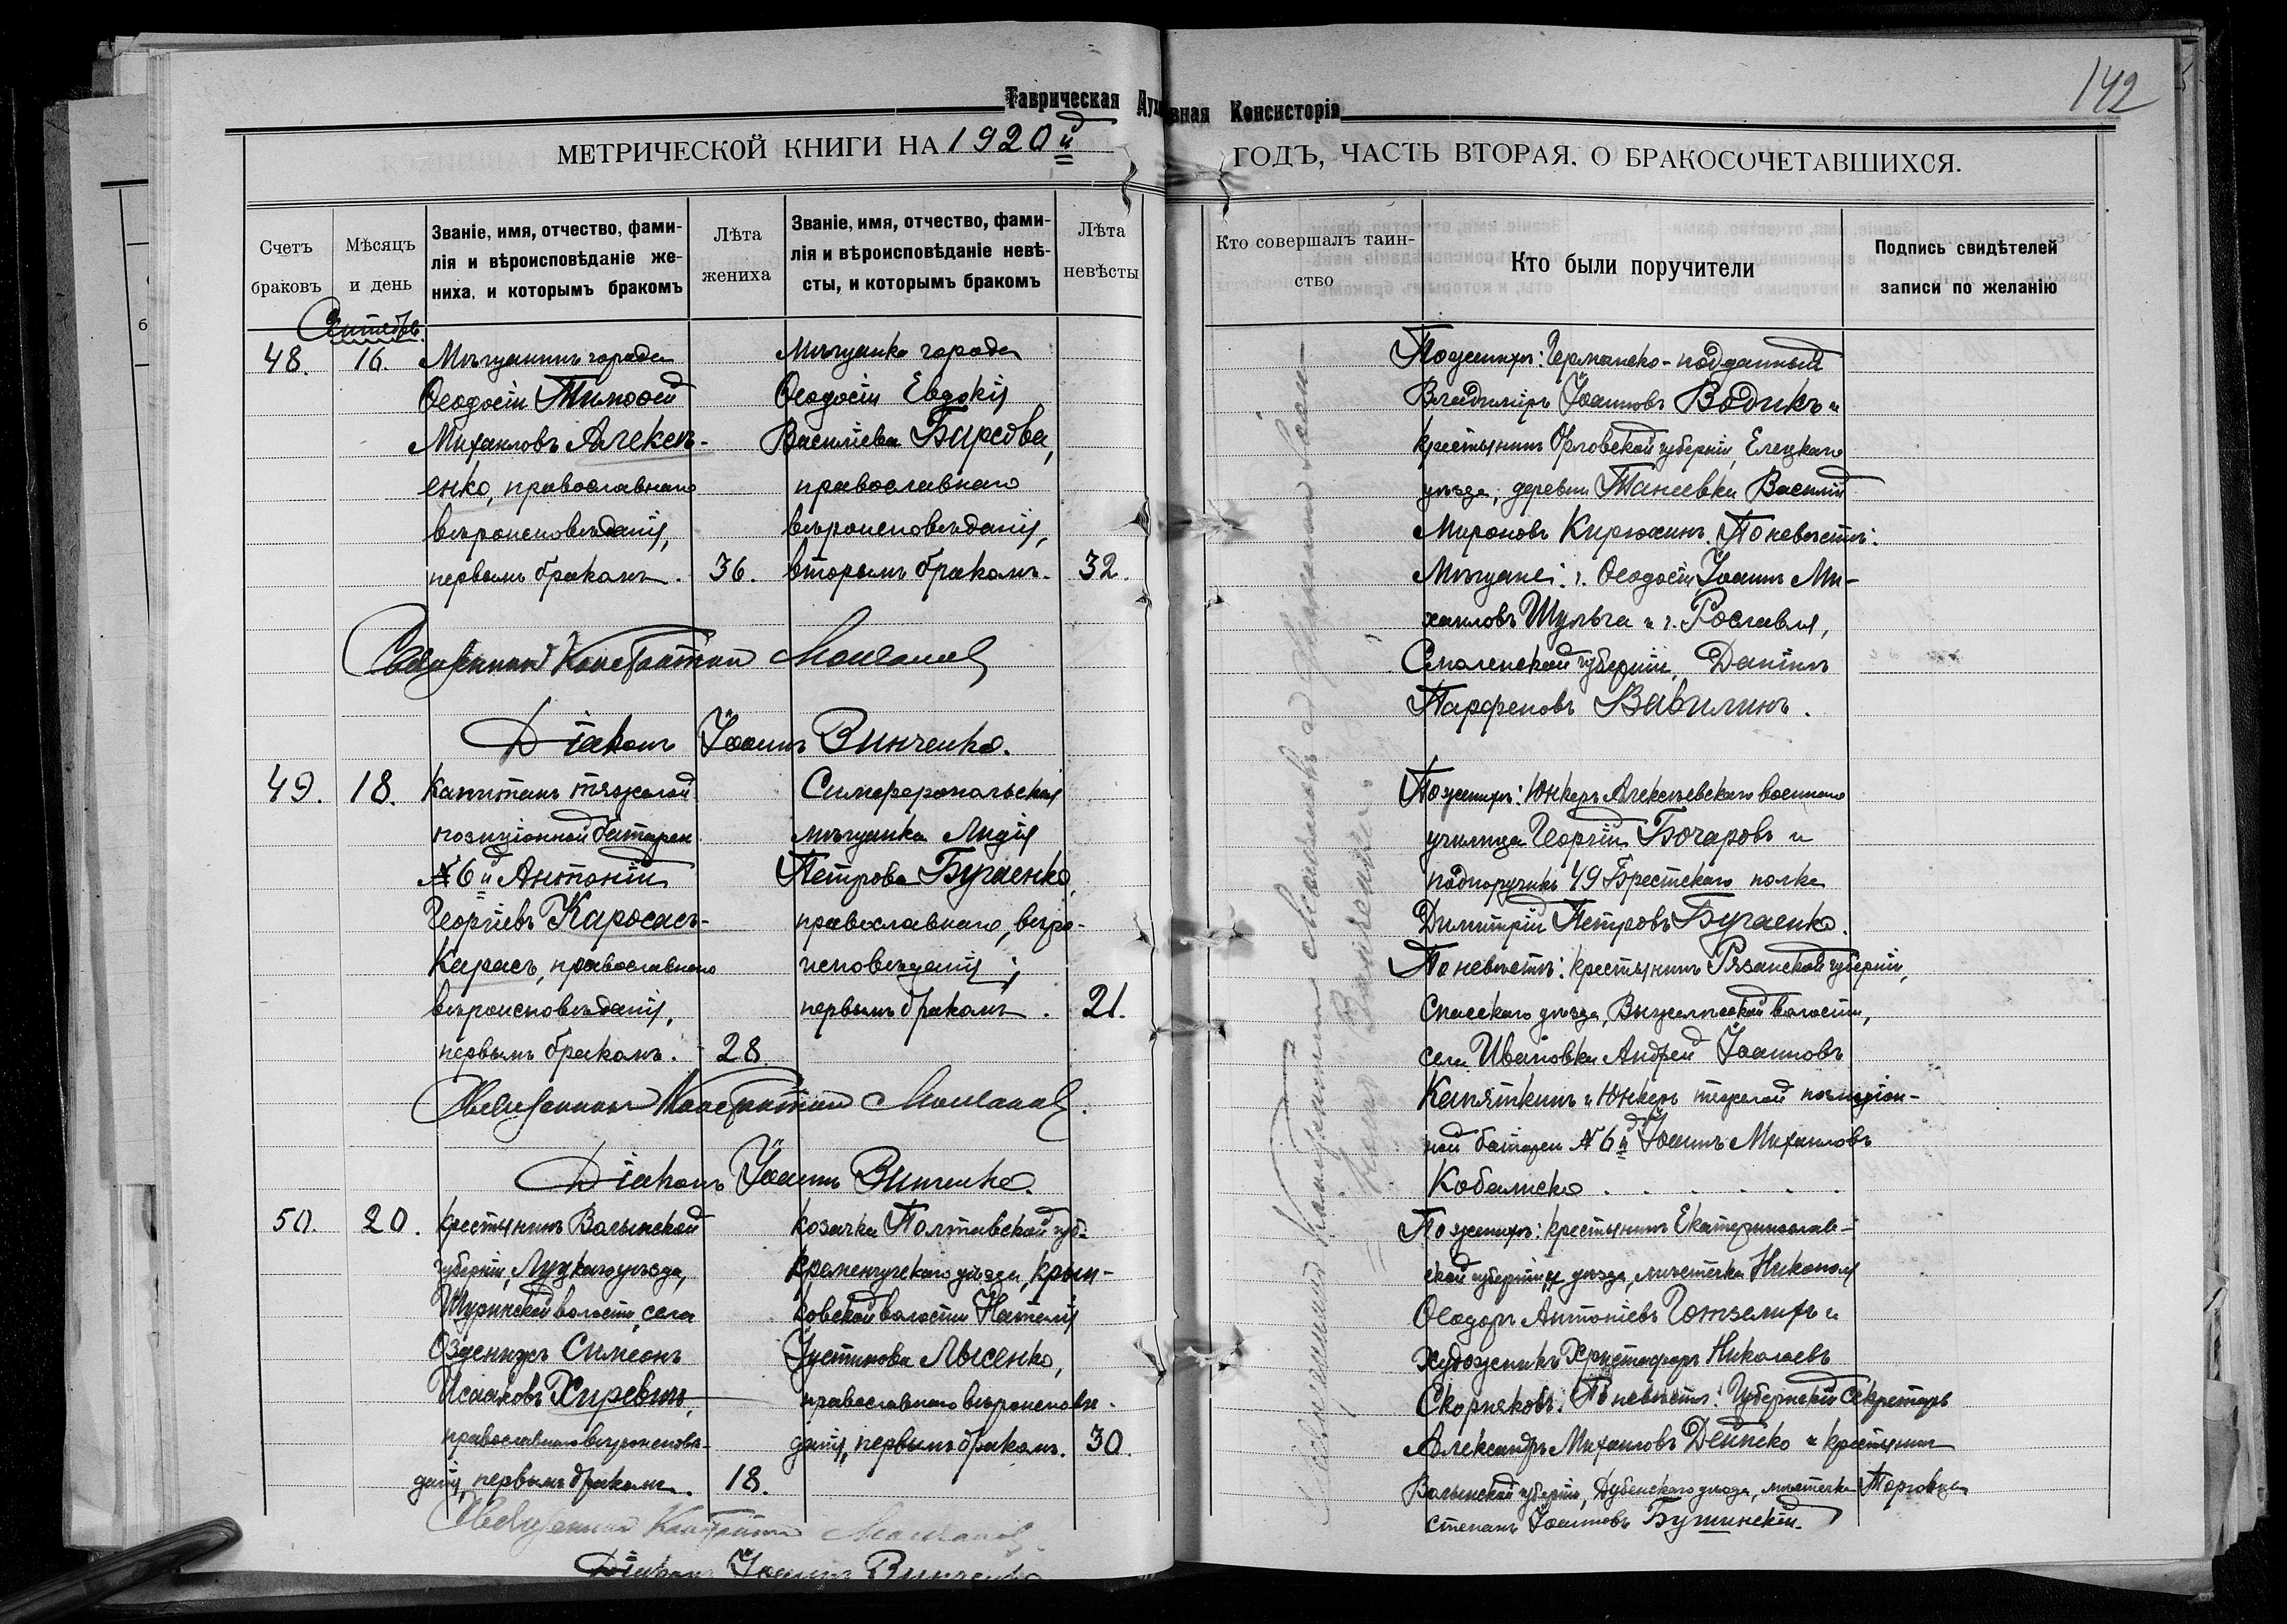 142
Таврическая Духовная Консисторія
МЕТРИЧЕСКОЙ КНИГИ НА 1920й
ГОДЪ, ЧАСТЬ ВТОРАЯ, О БРАКОСОЧЕТАВШИХСЯ.
Счетъ
браковъ
Мѣсяцъ
и день
Званіе, имя, отчество, фами-
лія и вѣроисповѣданіе же-
ниха, и которымъ бракомъ
Лѣта
жениха
Званіе, имя, отчество, фами-
лія и вѣроисповѣданіе невѣ-
сты, и которымъ бракомъ
Лѣта
невѣсты
Кто совершалъ таин-
ство
Кто были поручители
Подпись свидѣтелей
записи по желанію
Сентябрь
48.
16.
Мѣщанинъ города
Ѳеодосіи Тимоѳей
Михаиловъ Алексѣ-
енко, православнаго
вѣроисповѣданія,
первымъ бракомъ.
36.
Мѣщанка города
Ѳеодосіи Евдокія
Василіева Бирсова,
православнаго
вѣроисповѣданія,
вторымъ бракомъ.
32.
По женихѣ: Германско-подданный
Владиміръ Іоанновъ Водикъ и
крестьянинъ Орловской губерніи, Елецкаго
уѣзда, деревни Танеевки Василій
Мироновъ Кирюхинъ. По невѣстѣ:
Мѣщане: г. Ѳеодосіи Іоаннъ Ми-
хаиловъ Шульга и г. Рославля,
Смоленской губерніи, Даніилъ
Парѳеновъ Вавилинъ.
Священникъ Константинъ Молчановъ
Діаконъ Іоаннъ Винченко.
49.
18.
Капитанъ тяжелой
позиціонной батареи
№ 6й Антоній
Георгіевъ Каросасъ-
Карасъ, православнаго
вѣроисповѣданія,
первымъ бракомъ.
28
Симферопольская
мѣщанка Лидія
Петрова Бугаенко,
православнаго вѣро-
исповѣданія,
первымъ бракомъ.
21.
По женихѣ: Юнкеръ Алексѣевскаго военнаго
училища Георгій Бочаровъ и
подпоручикъ 49 Брестскаго полка
Димитрій Петровъ Бугаенко.
По невѣстѣ: крестьянинъ Рязанской губерніи,
Спасскаго уѣзда, волости,
села Ивановки Андрей Іоанновъ
Капяткинъ и Юнкеръ тяжелой позиціон-
ной батареи № 6й Іоаннъ Михаиловъ
Кобалиско
Священникъ Константинъ Молчановъ.
Діаконъ Іоаннъ Винченко.
50.
20.
крестьянинъ Волынской
губерніи, Луцкаго уѣзда,
Щуринской волости, села
Озденижъ Симеонъ
Исааковъ Хиревичъ,
православнаго вѣроисповѣ-
данія, первымъ бракомъ.
18.
козачка Полтавской губ.
Кременчугскаго уѣзда, Крюк-
ковской волости Наталія
Іустинова Лысенко,
православнаго вѣроисповѣ-
данія, первымъ бракомъ.
30.
По женихѣ: крестьянинъ Екатеринослав-
ской губерніи и уѣзда, мѣстечка Никополя
Ѳеодоръ Антоніевъ Готзелихъ и
художникъ Христофоръ Николаевъ
Скорняковъ. По невѣстѣ: Губернскій секретарь
Александръ Михаиловъ Дейнеко и крестьянинъ
Волынской губерніи, Дубенскаго уѣзда, мѣстечка Торговицы
Степанъ Іоанновъ Бушинскій.
Священникъ Константинъ Молчановъ
Діаконъ Іоаннъ Винченко